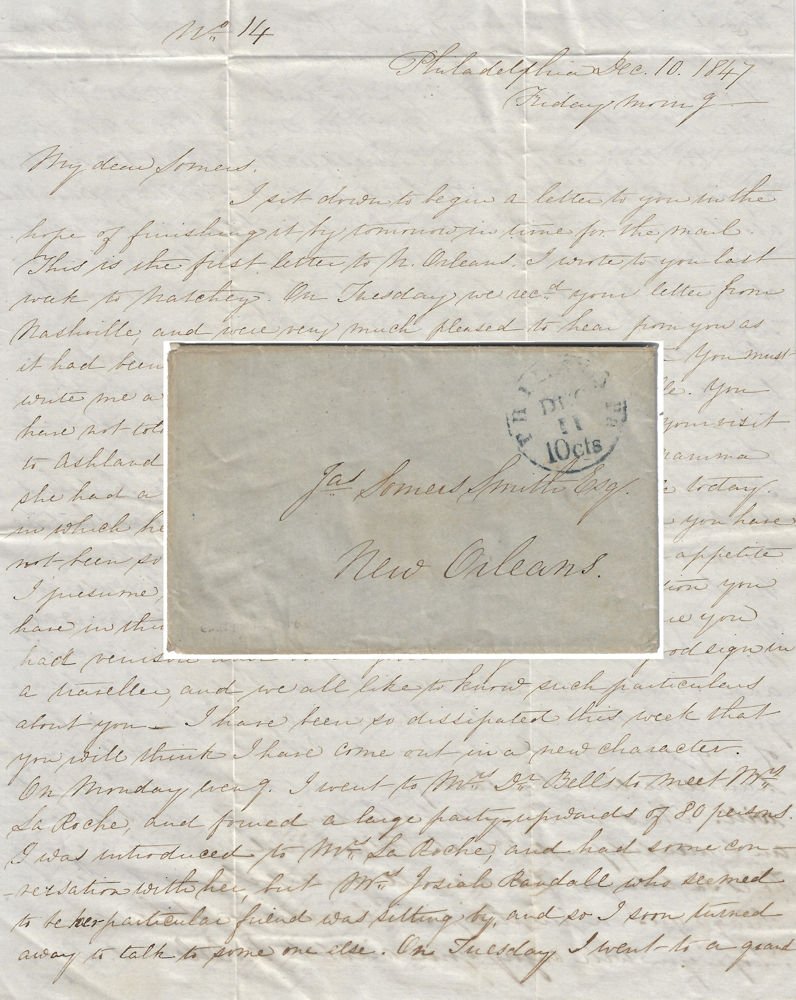 No 14
Philadelphia Dec. 10. 1847
Friday morng —
My dear Somers.
I sit down to begin a letter to you in the
hope of finishing it by tomorrow, in time for the mail.
This is the first letter to N. Orleans. I wrote to you last
week to Natchez. On Tuesday we recd your letter from
Nashville, and were very much pleased to hear from you as
it had been You must
write me a You
have not told your visit
to Ashland mamma
she had a today.
in which he you have
not been so appetite
I presume, you
have in this you
had venison good sign in
a traveller, and we all like to know such particulars
about you — I have been so dissipated this week that
you will think I have come out in a new character.
On Monday eveng. I went to Mrs Dr Bell's to meet Mrs
La Roche, and found a large party — upwards of 80 persons.
I was introduced to Mrs La Roche, and had some con-
-versation with her, but Mrs Josiah Randall who seemed
to be her particular friend was sitting by, and so I soon turned
away to talk to some one else. On Tuesday I went to a grand
DEC
11
10cts
Jas Somers Smith Esq.
New Orleans.